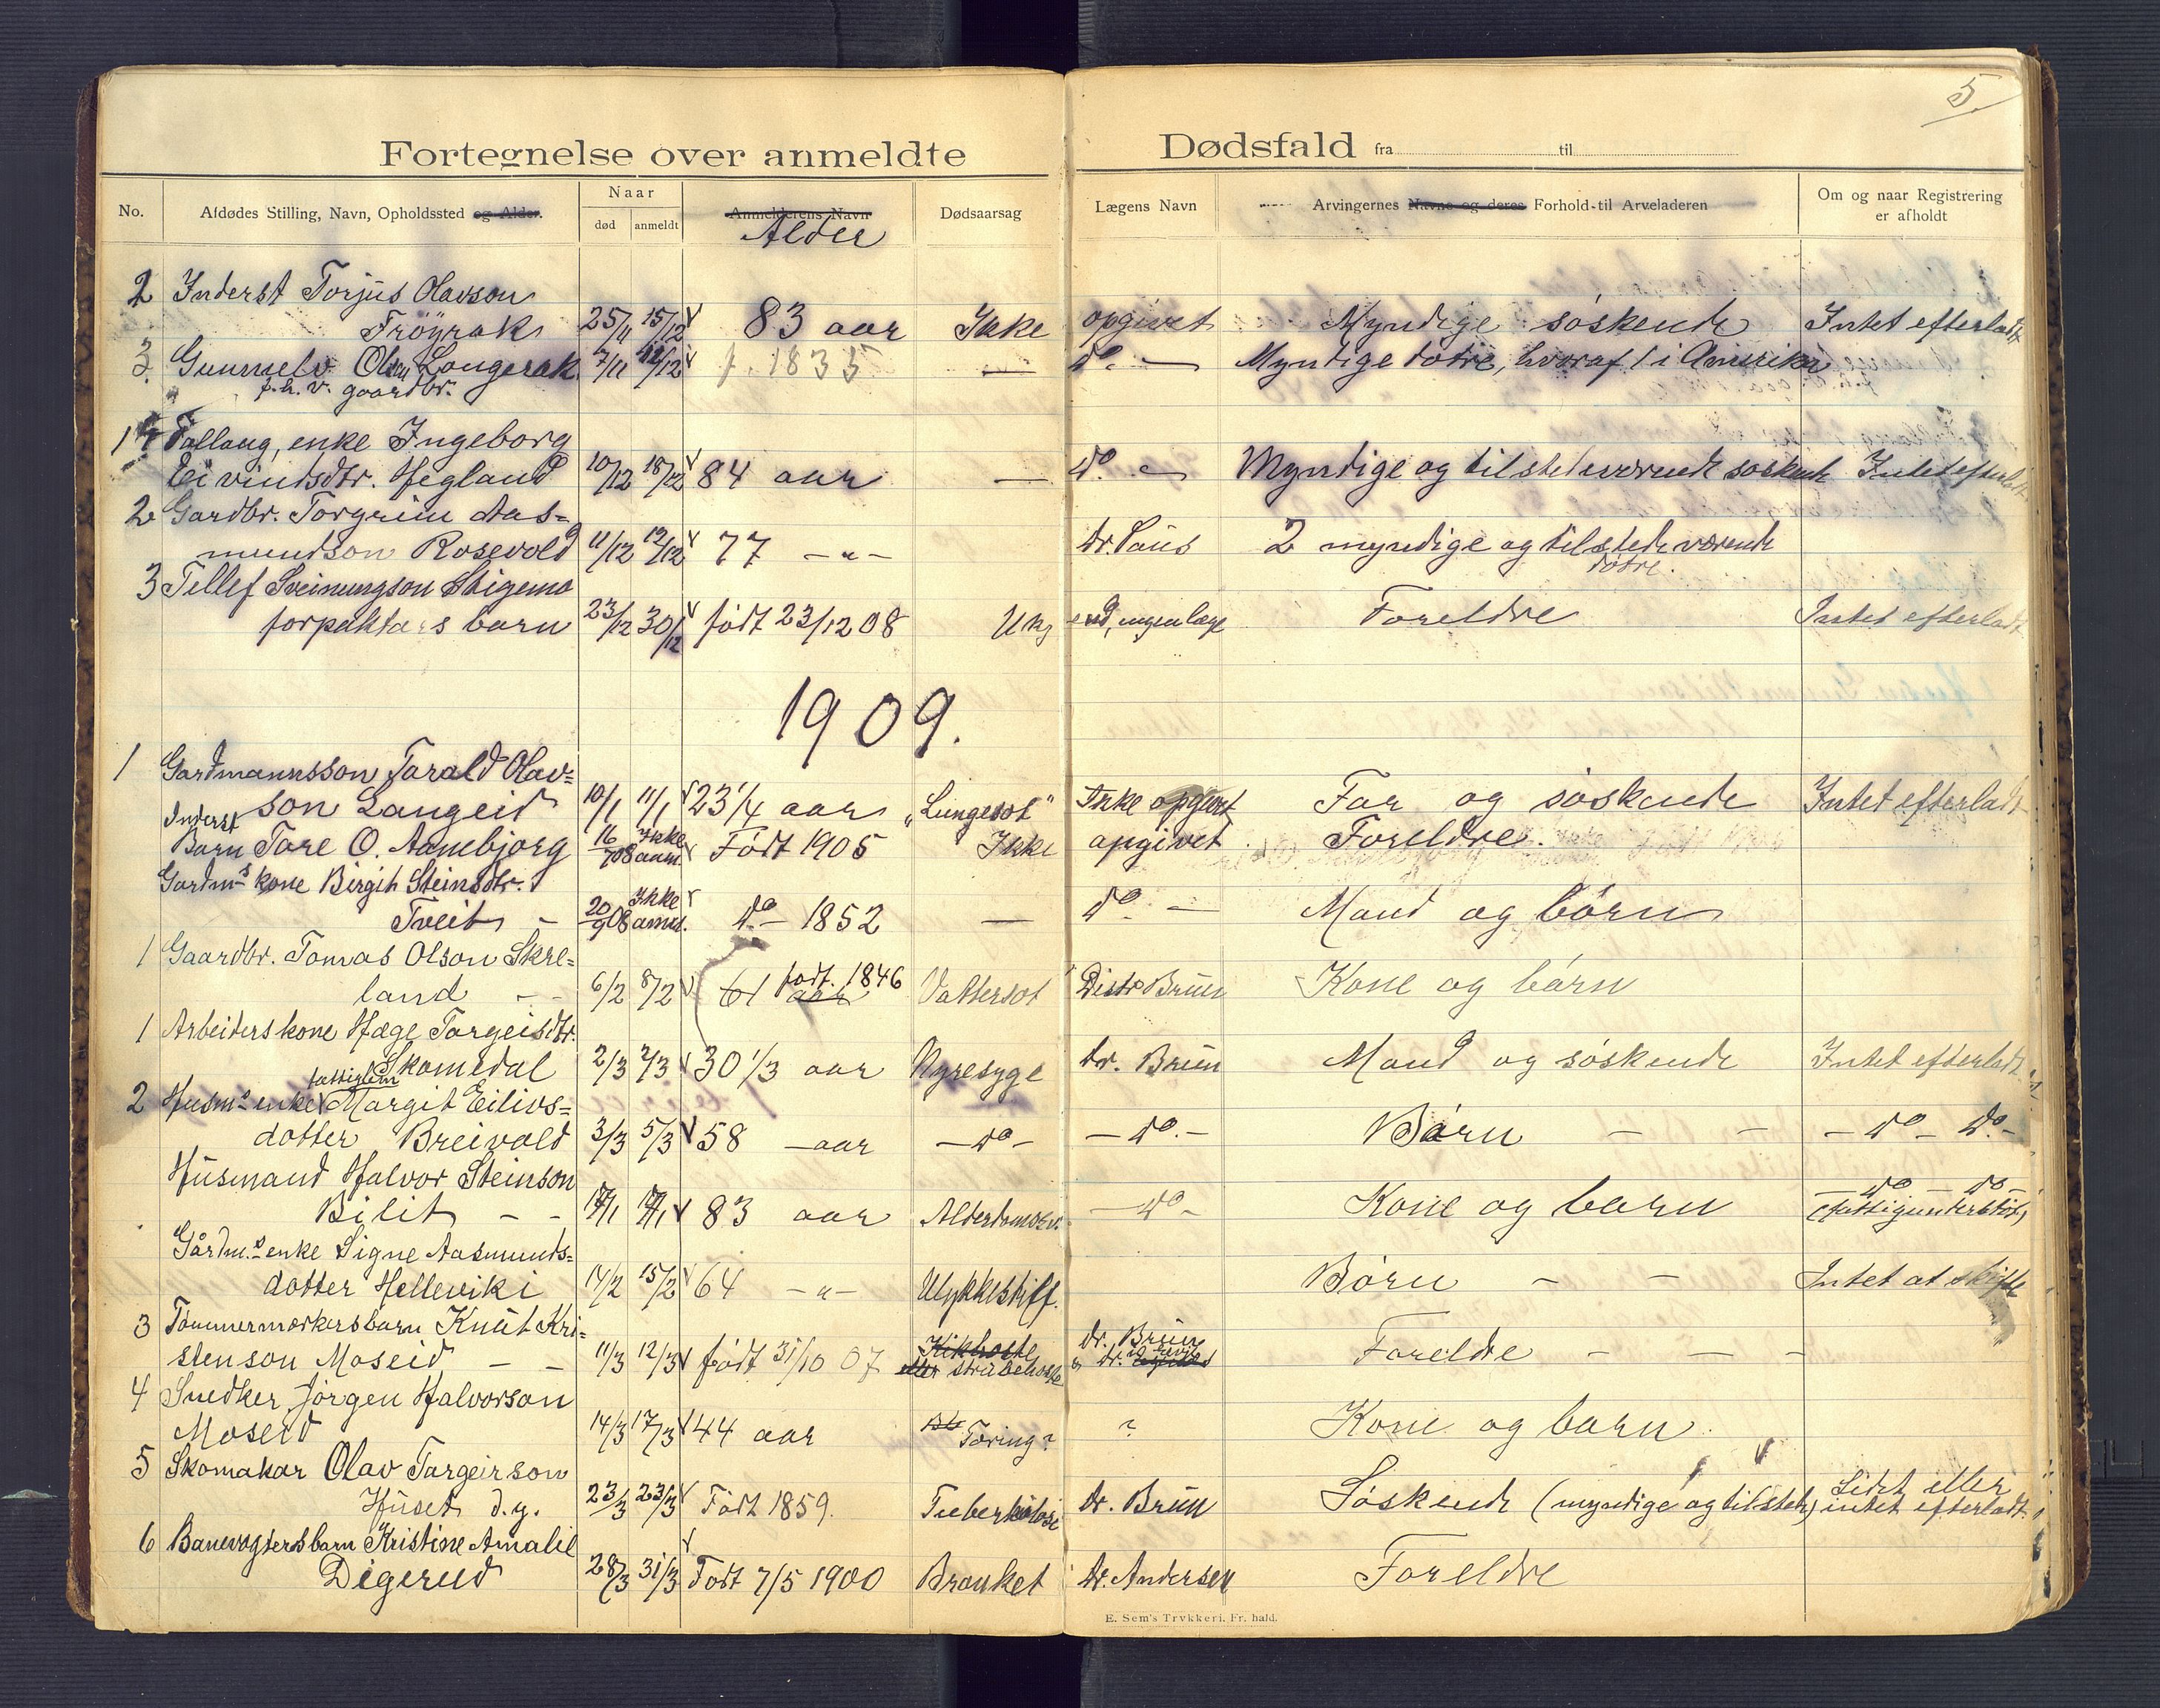 5
Fortegnelse over anmeldte Dødsfald fra til
No. Afdødes Stilling, Navn, Opholdssted og Alder. Naar død anmeldt Anmelderens Navn Alder Dødsaarsag Lægens Navn Arvingernes Navne og deres Forhold til Arveladeren Om og naar Registrering er afholdt
2 Inderst Torjus Olavson
Frøyrak 25/11 15/12 83 aar Ikke opgivet Myndige søskende Intet efterladt
3. Gunnelv Olsen Langerak 7/11 12/12 f. 1835 — do. — Myndige døtre, hvoraf 1 i Amerika
f. h. v. gaardbr.
1 Fallaug, enke Ingeborg
Eivindsdtr. Hegland 10/12 18/12 84 aar — do — Myndige og tilstedeværende søskende Intet efterladt
2 Gardbr. Torgrim Aas=
mundson Rosevold 11/12 12/12 77 -"- dr. Paus 2 myndige og tilstedeværende
døtre.
3 Tellef Sveinungson Stigemo
forpaktars barn 23/12 30/12 født 23/12 08 Ukjend, ingen læge Foreldre Intet efterladt
1909.
1 Gardmannsson Tarald Olav=
son Langeid 10/1 11/1 23 1/4 aar "Lungesot" Ikke opgivet Far og søskende Intet efterladt
Inderst
Barn Tore O. Aamebjorg 16/7 08 Ikke anm. Født 1905 Ikke opgivet Foreldre.
Gardm.s kone Birgit Steinsdtr.
Tveit - 20/9 08 Ikke anm. do - 1852 — do. — Mand og børn
1 Gaardbr. Tomas Olson Skre=
land - - 6/2 8/2 61 aar født. 1846 Vattersot Distr Bruun Kone og børn
1 Arbeiderskone Hæge Targeisdtr.
Skomedal 2/3 2/3 30 1/3 aar Nyresyge dr. Bruun Mand og søskende Intet efterladt
2 Husm.s enke fattiglem Margit Eilivs=
dotter Breivold 3/3 5/3 58 - aar - do - - do. - Børn - - - do - do. -
Husmand Halvor Steinson
Bilit - - 17/1 83 aar Alderdomssv. - do - Kone og barn - do - do - (fattigunderstøt)
Gårdm.s enke Signe Aasmunds=
dotter Helleviki 14/2 15/2 64 -"- Ulykkestilf. Børn - - Intet at skifte
3 Tømmermerkersbarn Knut Kri=
stenson Moseid - - 11/3 12/3 født 31/10 07 Kikhoste eller strubehoste dr. Bruun Foreldre - - -
4 Snedker Jørgen Halvorson
Moseid 14/3 17/3 44 aar Tæring? ? Kone og barn
5 Skomakar Olav Targeirson
Huset d.y. 23/3 23/3 Født 1859. Tuberkulose dr. Bruun Søskende (myndige og tilstede) Lidet eller intet efterladt.
6 Banevogtersbarn Kristine Amalie
Digerud 28/3 31/3 Født 7/5 1900 Bronket dr. Andersen Foreldre
E. Sem's Trykkeri. Fr. hald.